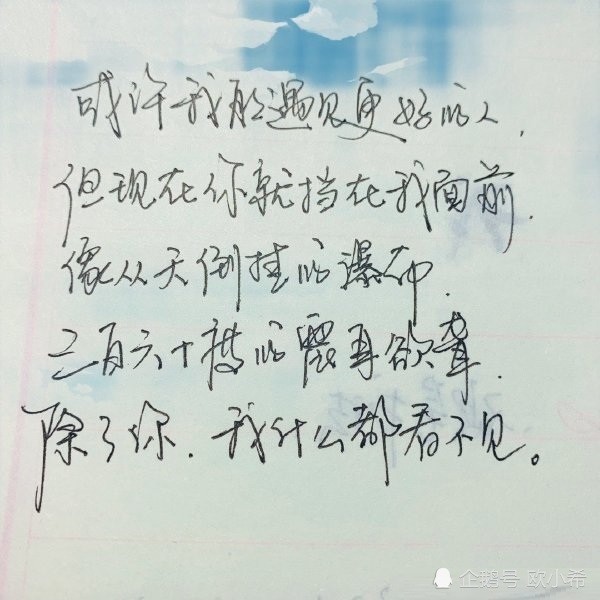 或许我能遇见更好的人,
但现在你就挡在我面前,
像从天倒挂的瀑布,
三百六十度的震耳欲聋,
除了你,我什么都看不见。
企鹅号 欧小希